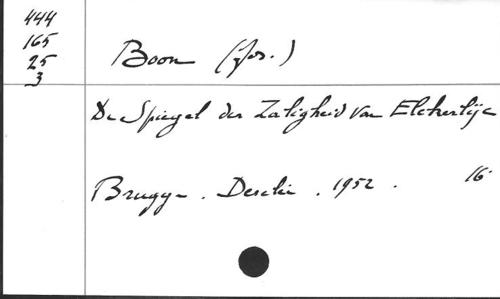 444
165
25
3
Boon (Jos.)
De Spiegel der Zaligheid van Elckerlijc
Brugge. Desclée. 1952. 16°